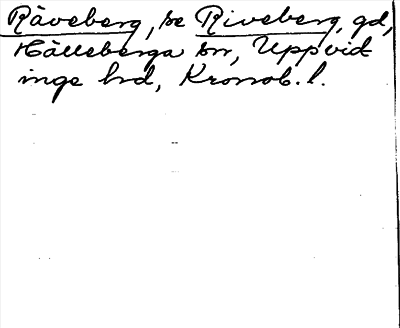 Räveberg, se Riveberg, gd,
Hälleberga sn, Uppvid
inge hd, Kronob. l.